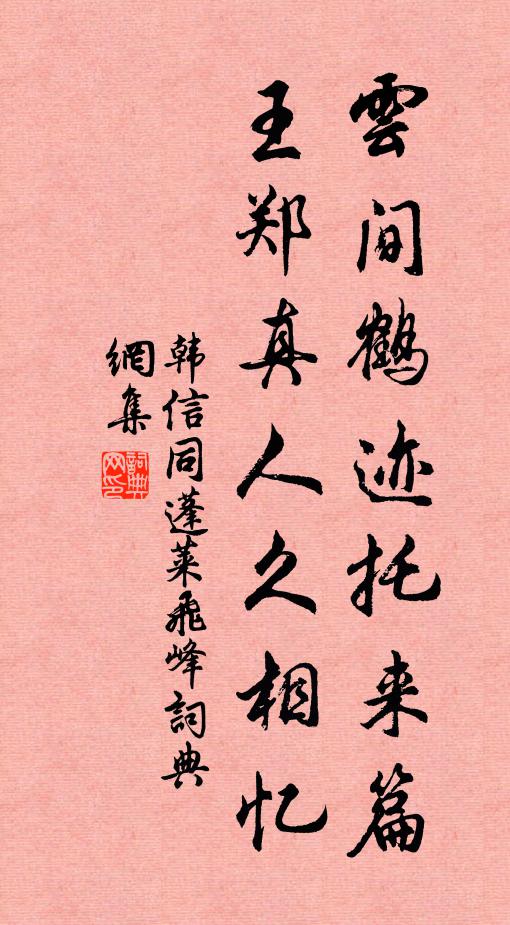 雲间鹤迹托来篇
王郑真人久相忆
韩信同蓬莱飛峰詞典
網集
詞典网印